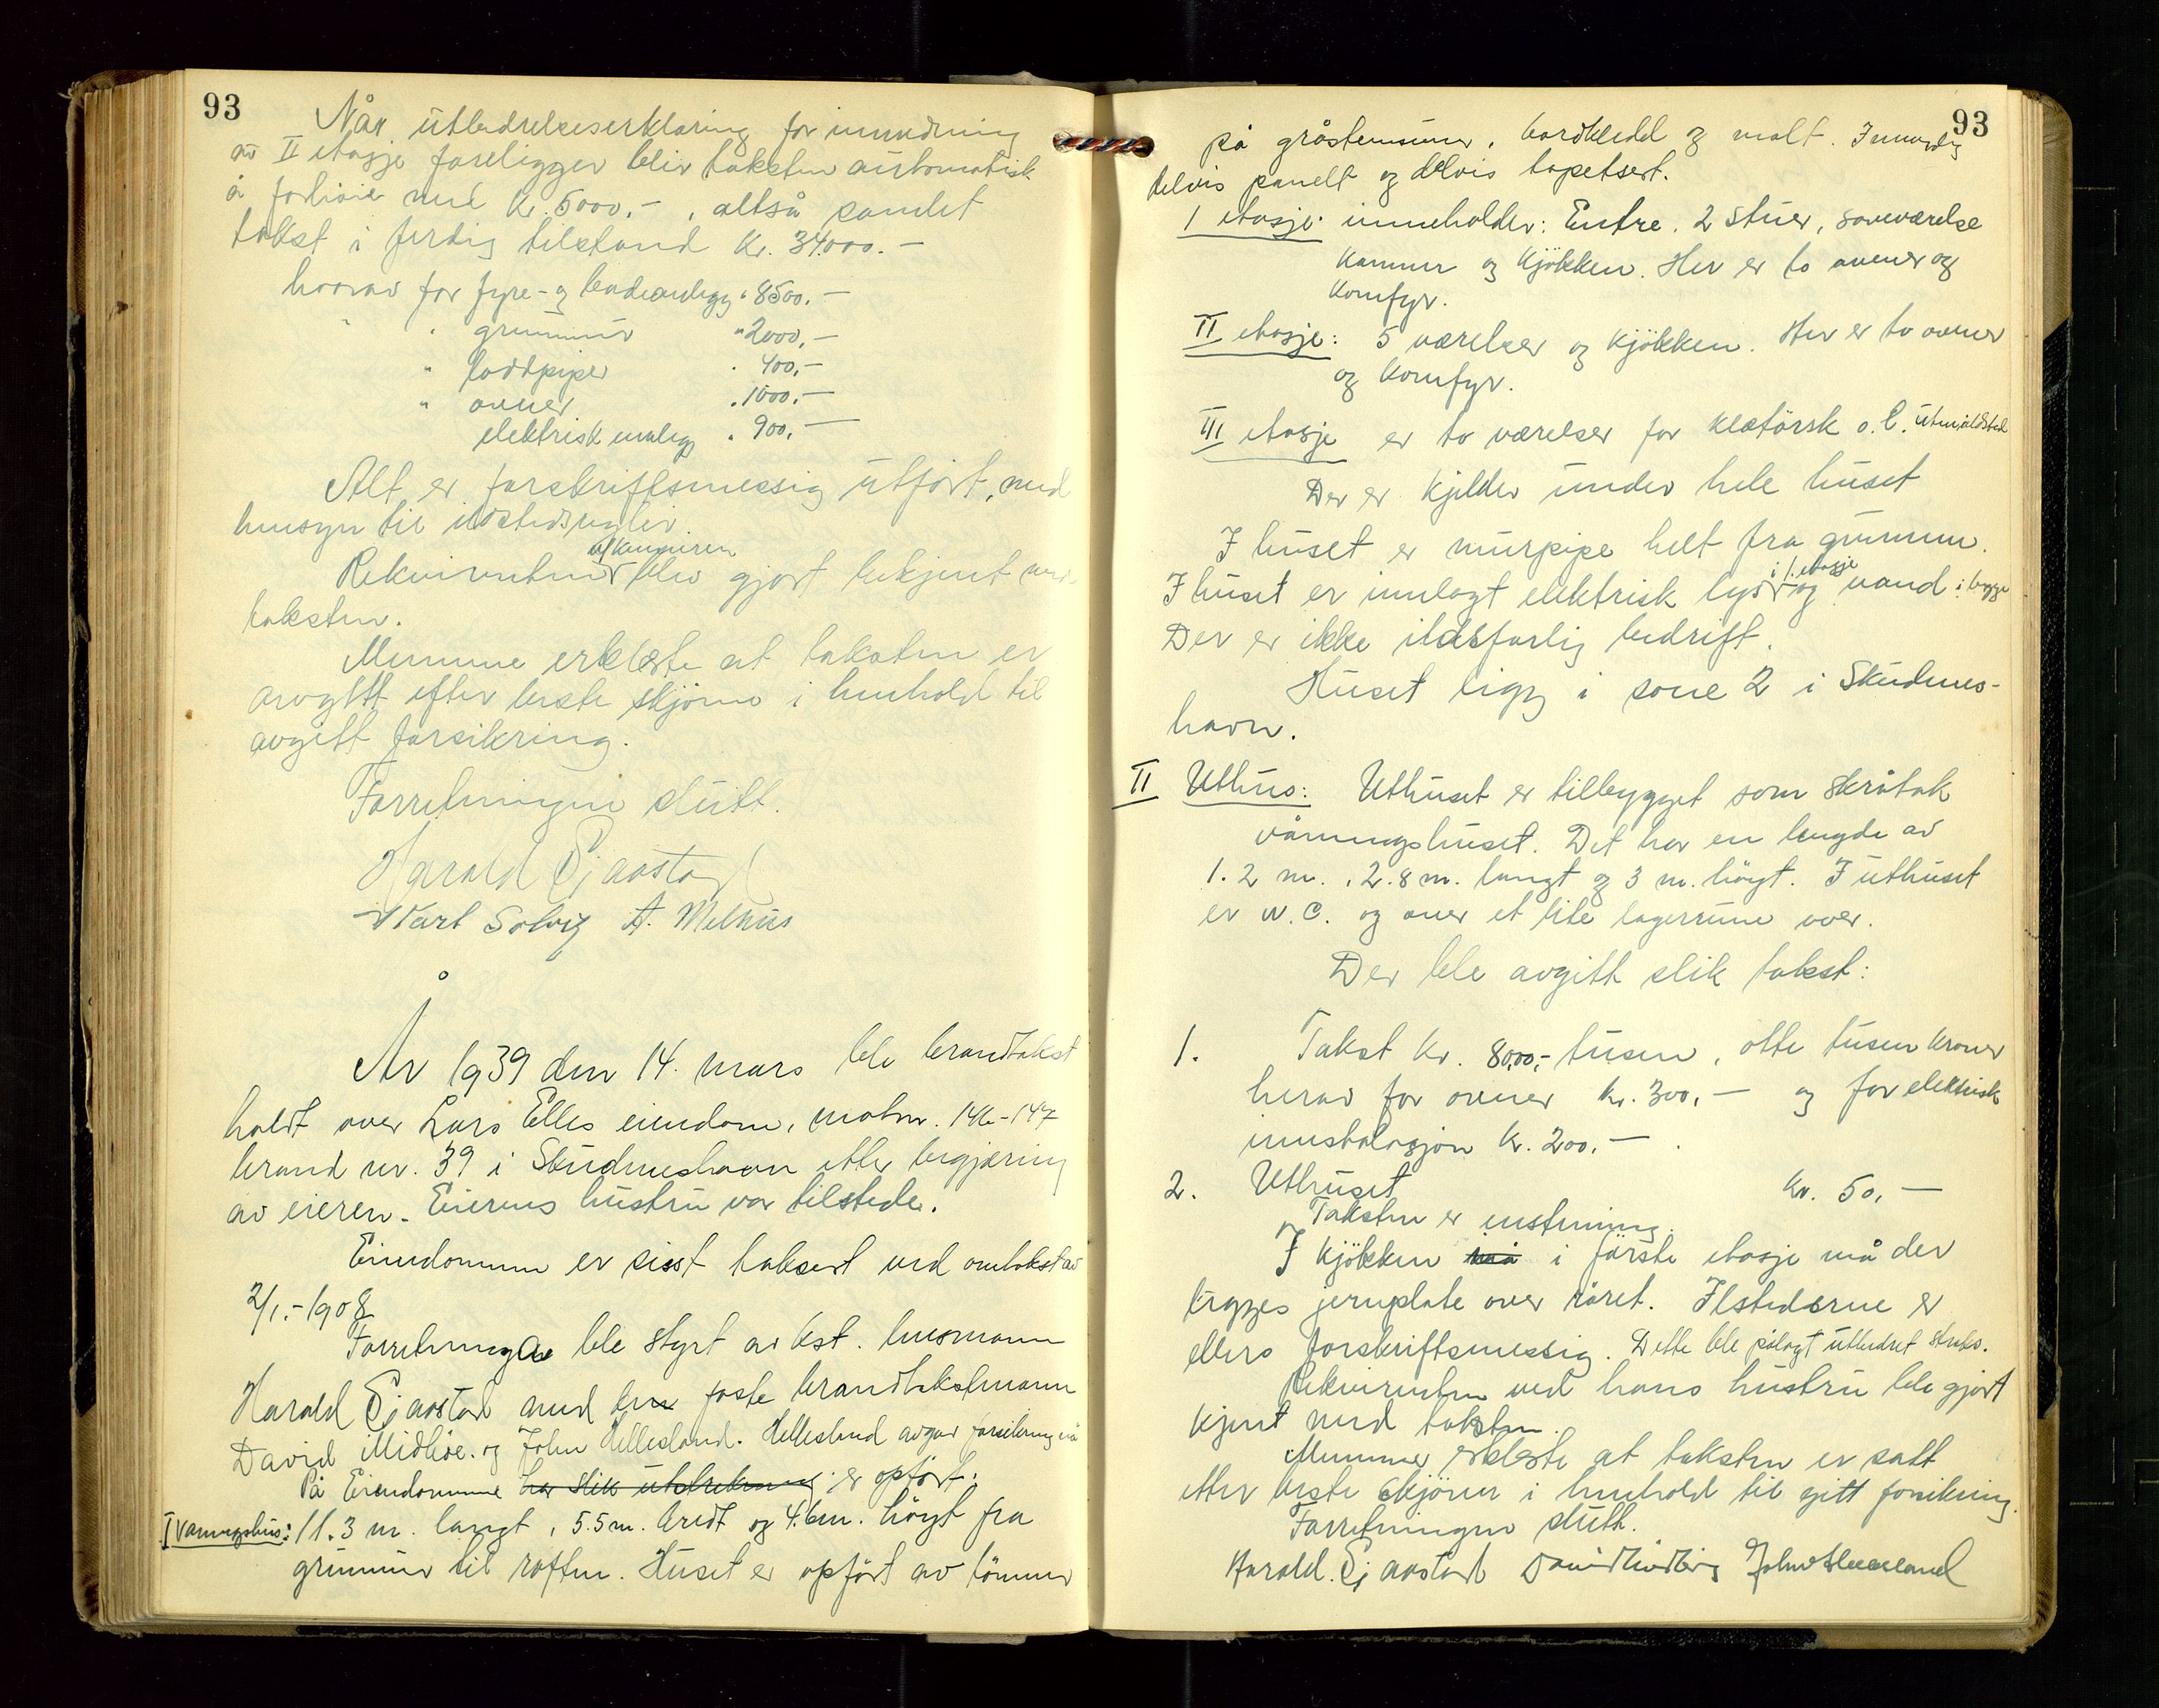 93
Når utbedrelseserklæring for innredning
av II etasje foreligger blir taksten automatisk
å forhöie med kr. 5000.-, altså samlet
takst i ferdig tilstand kr. 34.000.-
hvorav for fyre- og badeanlegg " 8500.-
" " grunnmur " 2000,-
" loddpiper " 400,-
" ovner " 1000,-
elektrisk anlegg " 900,-
Alt er forskriftsmessig utført, med
hensyn til ildstedsregler.
v/ Kaupiren
Rekvirenten blev gjort bekjent med
taksten.
Mennene erklærte at taksten er
avgitt efter beste skjönn i henhold til
avgitt forsikring.
Forretningen slutt.
Harald Sjaastad
Karl Solvig A. Melhus
År 1939 den 14. mars ble brandtakst
holdt over Lars Elles eiendom, matrn. 146-147
brand nr. 39 i Skudeneshavn etter begjæring
av eieren. Eierens hustru var tilstede.
Eiendommen er sisst taksert ved omtakst av
2/1.-1908
Forretningen ble styrt av kst. lensmann
Harald Sjaastad med den faste brandtakstmann
David Midböe og John Hellesland. Hellesland avgav forsikring
På Eiendommen har slik utstrekning er opfört:
I Vaningshus: 11.3 m. langt, 5.5 m. bredt og 4.6 m. höigt fra
grunnmur til raften. Huset er opfört av tömmer
93
på gråstensmur, bordkledd og malt. Innvendig
delvis panelt og delvis tapetsert.
1 etasje inneholder: Entre, 2 stuer, soveværelse
kammer og kjökken. Her er to ovner og
komfyr.
II etasje: 5 værelser og kjökken. Her er to ovner
og komfyr.
III etasje er to værelser for kletörsk o. l.
Der er kjelder under hele huset
I huset er murpipe helt fra grunnen.
i 1. etasje
I huset er innlagt elektrisk lys og vand i begge
Der er ikke ildsfarlig bedrift.
Huset ligg i sone 2 i Skudenes-
havn.
II Uthus: Uthuset er tilbygget som skråtak
våningshuset. Det har en lengde av
1.2 m., 2.8 m. langt og 3 m. höigt. I uthuset
er w.c. og over et lite lagerrum over.
Der ble avgitt slik takst:
1. Takst kr. 8000,- tusen, otte tusen kroner
herav for ovner kr. 300,- og for elektrisk
innstalasjon kr. 200.-
2. Uthuset kr. 50,-
Taksten er enstemmig.
I kjökken må i förste etasje må der
legges jernplate over röret. Ilstederne er
ellers forskriftsmessig. Dette ble pålagt utbedret straks.
Rekvirenten ved hans hustru ble gjort
kjent med taksten.
Mennene erklærte at taksten er satt
etter beste skjönn i henhold til gitt forsikring.
Forretningen slutt.
Harald Sjaastad David Midböe John Hellesland